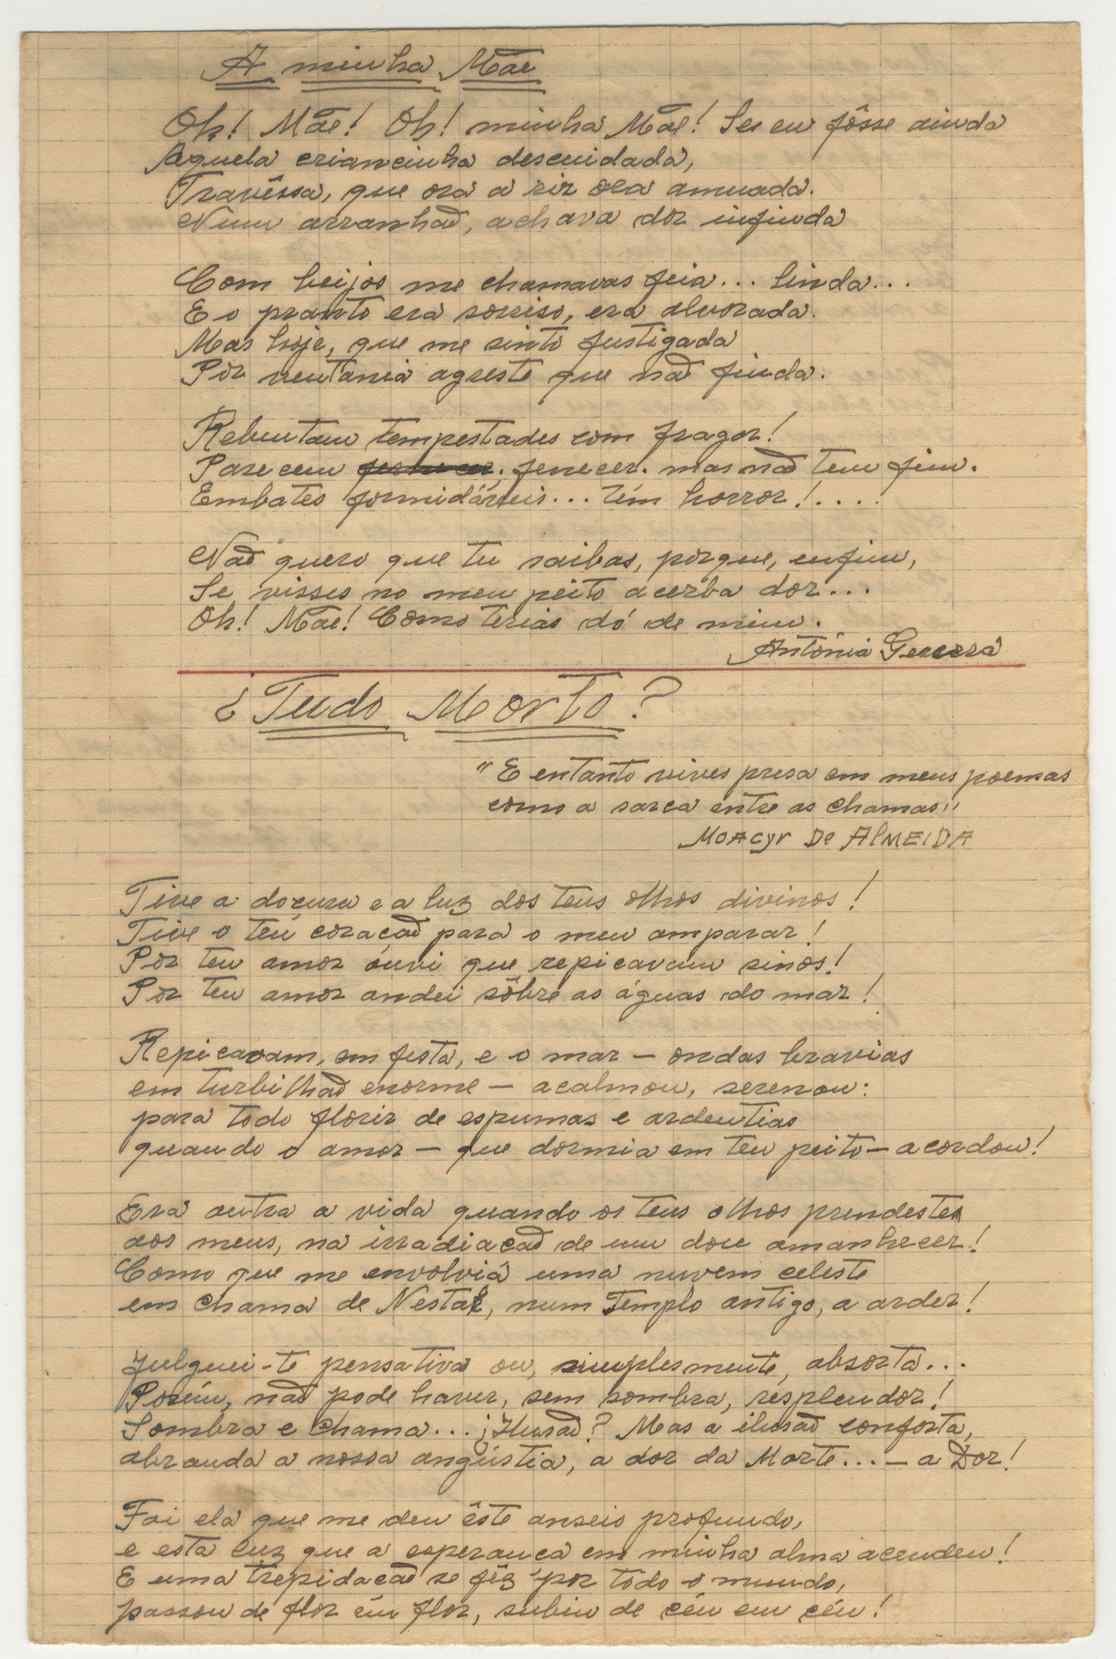 A minha Mãe
Oh! Mãe! Oh! minha Mãe! Se eu fôsse ainda
Aquela criancinha descuidada,
Travêssa, que ora a rir ora amuada.
Num arranhaõ, achava dor infinda
Com beijos me chamavas feia... linda...
E o pranto era sorriso, era alvorada.
Mas hoje, que me sinto fustigada
Por ventania agreste que naõ finda.
Rebentam tempestades com fragor!
Parecem fenecer. mas naõ tem fim.
Embates formidáveis... Têm horror!....
Naõ quero que tu saibas, porque, enfim,
Se visses no meu peito acerba dor...
Oh! Mãe! Como terias dó de mim.
Antónia
¿Tudo Morto?
"E entanto vives presa em meus poemas
como a sarça entre as chamas"
Moacyr De AlMEIDA
Tive a doçura e a luz dos teus olhos divinos!
Tive o teu coraçaõ para o meu amparar!
Por teu amor ouvi que repicavam sinos!
Por teu amor andei sôbre as águas do mar!
Repicavam, em festa, e o mar - ondas bravias
em turbilhaõ enorme - acalmou, serenou:
para todo florir de espumas e ardentias
quando o amor - que dormia em teu peito - acordou!
Era outra a vida quando os teus olhos prendeste
aos meus, na irradiaçaõ de um doce amanhecer!
Como que me envolvia uma nuvem celeste
em chama de Nestal, num Templo antigo, a arder!
Julguei-te pensativa ou, simplesmente, absorta...
Porém, naõ pode haver, sem sombra, resplendor!
Sombra e Chama... ¿Ilusaõ? Mas a ilusaõ conforta,
abranda a nossa angústia, a dor da Morte... - a Dor!
Foi ela que me deu êste anseio profundo,
e esta luz que a esperança em minha alma acendeu!
E uma trepidaçaõ se fêz por todo o mundo,
passou de flor em flor, subiu de céu em céu!